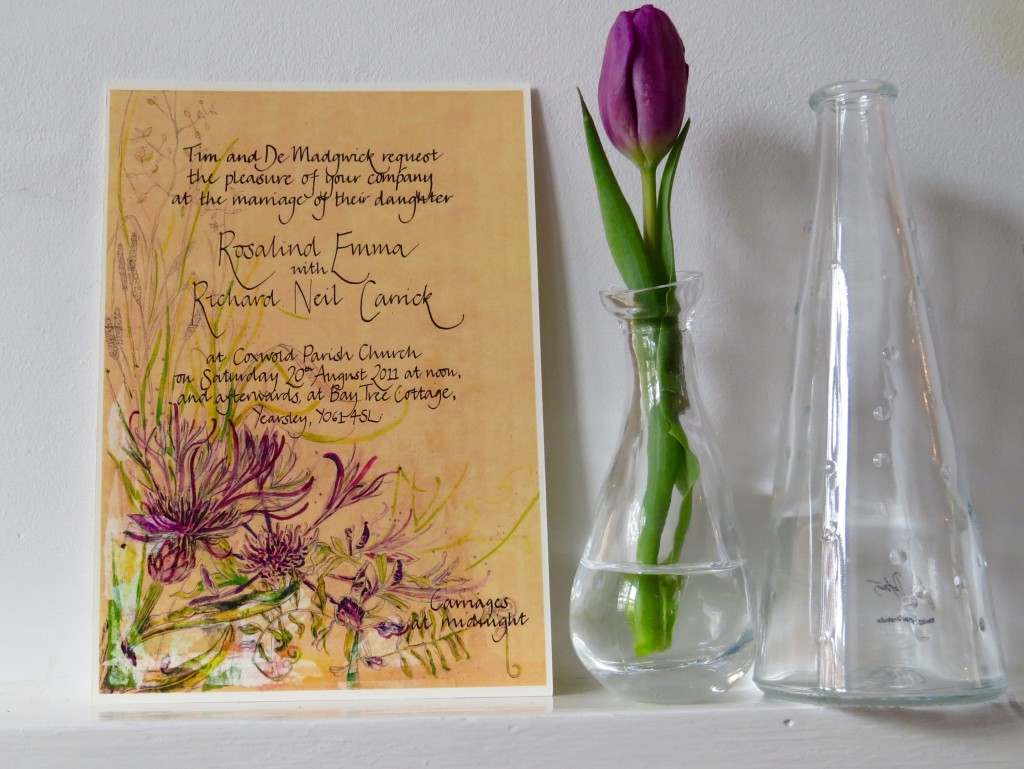 Tim and De Madgwick request
the pleasure of your company
at the marriage of their daughter
Rosalind Emma
with
Richard Neil Carrick
at Coxwold Parish Church
on Saturday 20th August 2011 at noon,
and afterwards at Bay Tree Cottage,
Yearsley, YO61 4SL
Carriages
at midnight